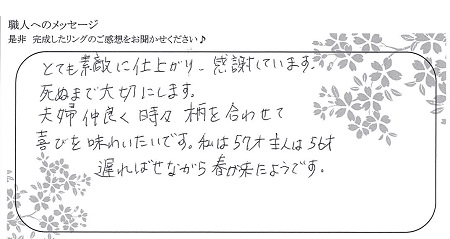 職人へのメッセージ
是非 完成したリングのご感想をお聞かせください♪
とても素敵に仕上がり、感謝しています。
死ぬまで大切にします。
夫婦仲良く時々柄を合わせて
喜びを味わいたいです。私は57才主人は56才
遅ればせながら春が来たようです。